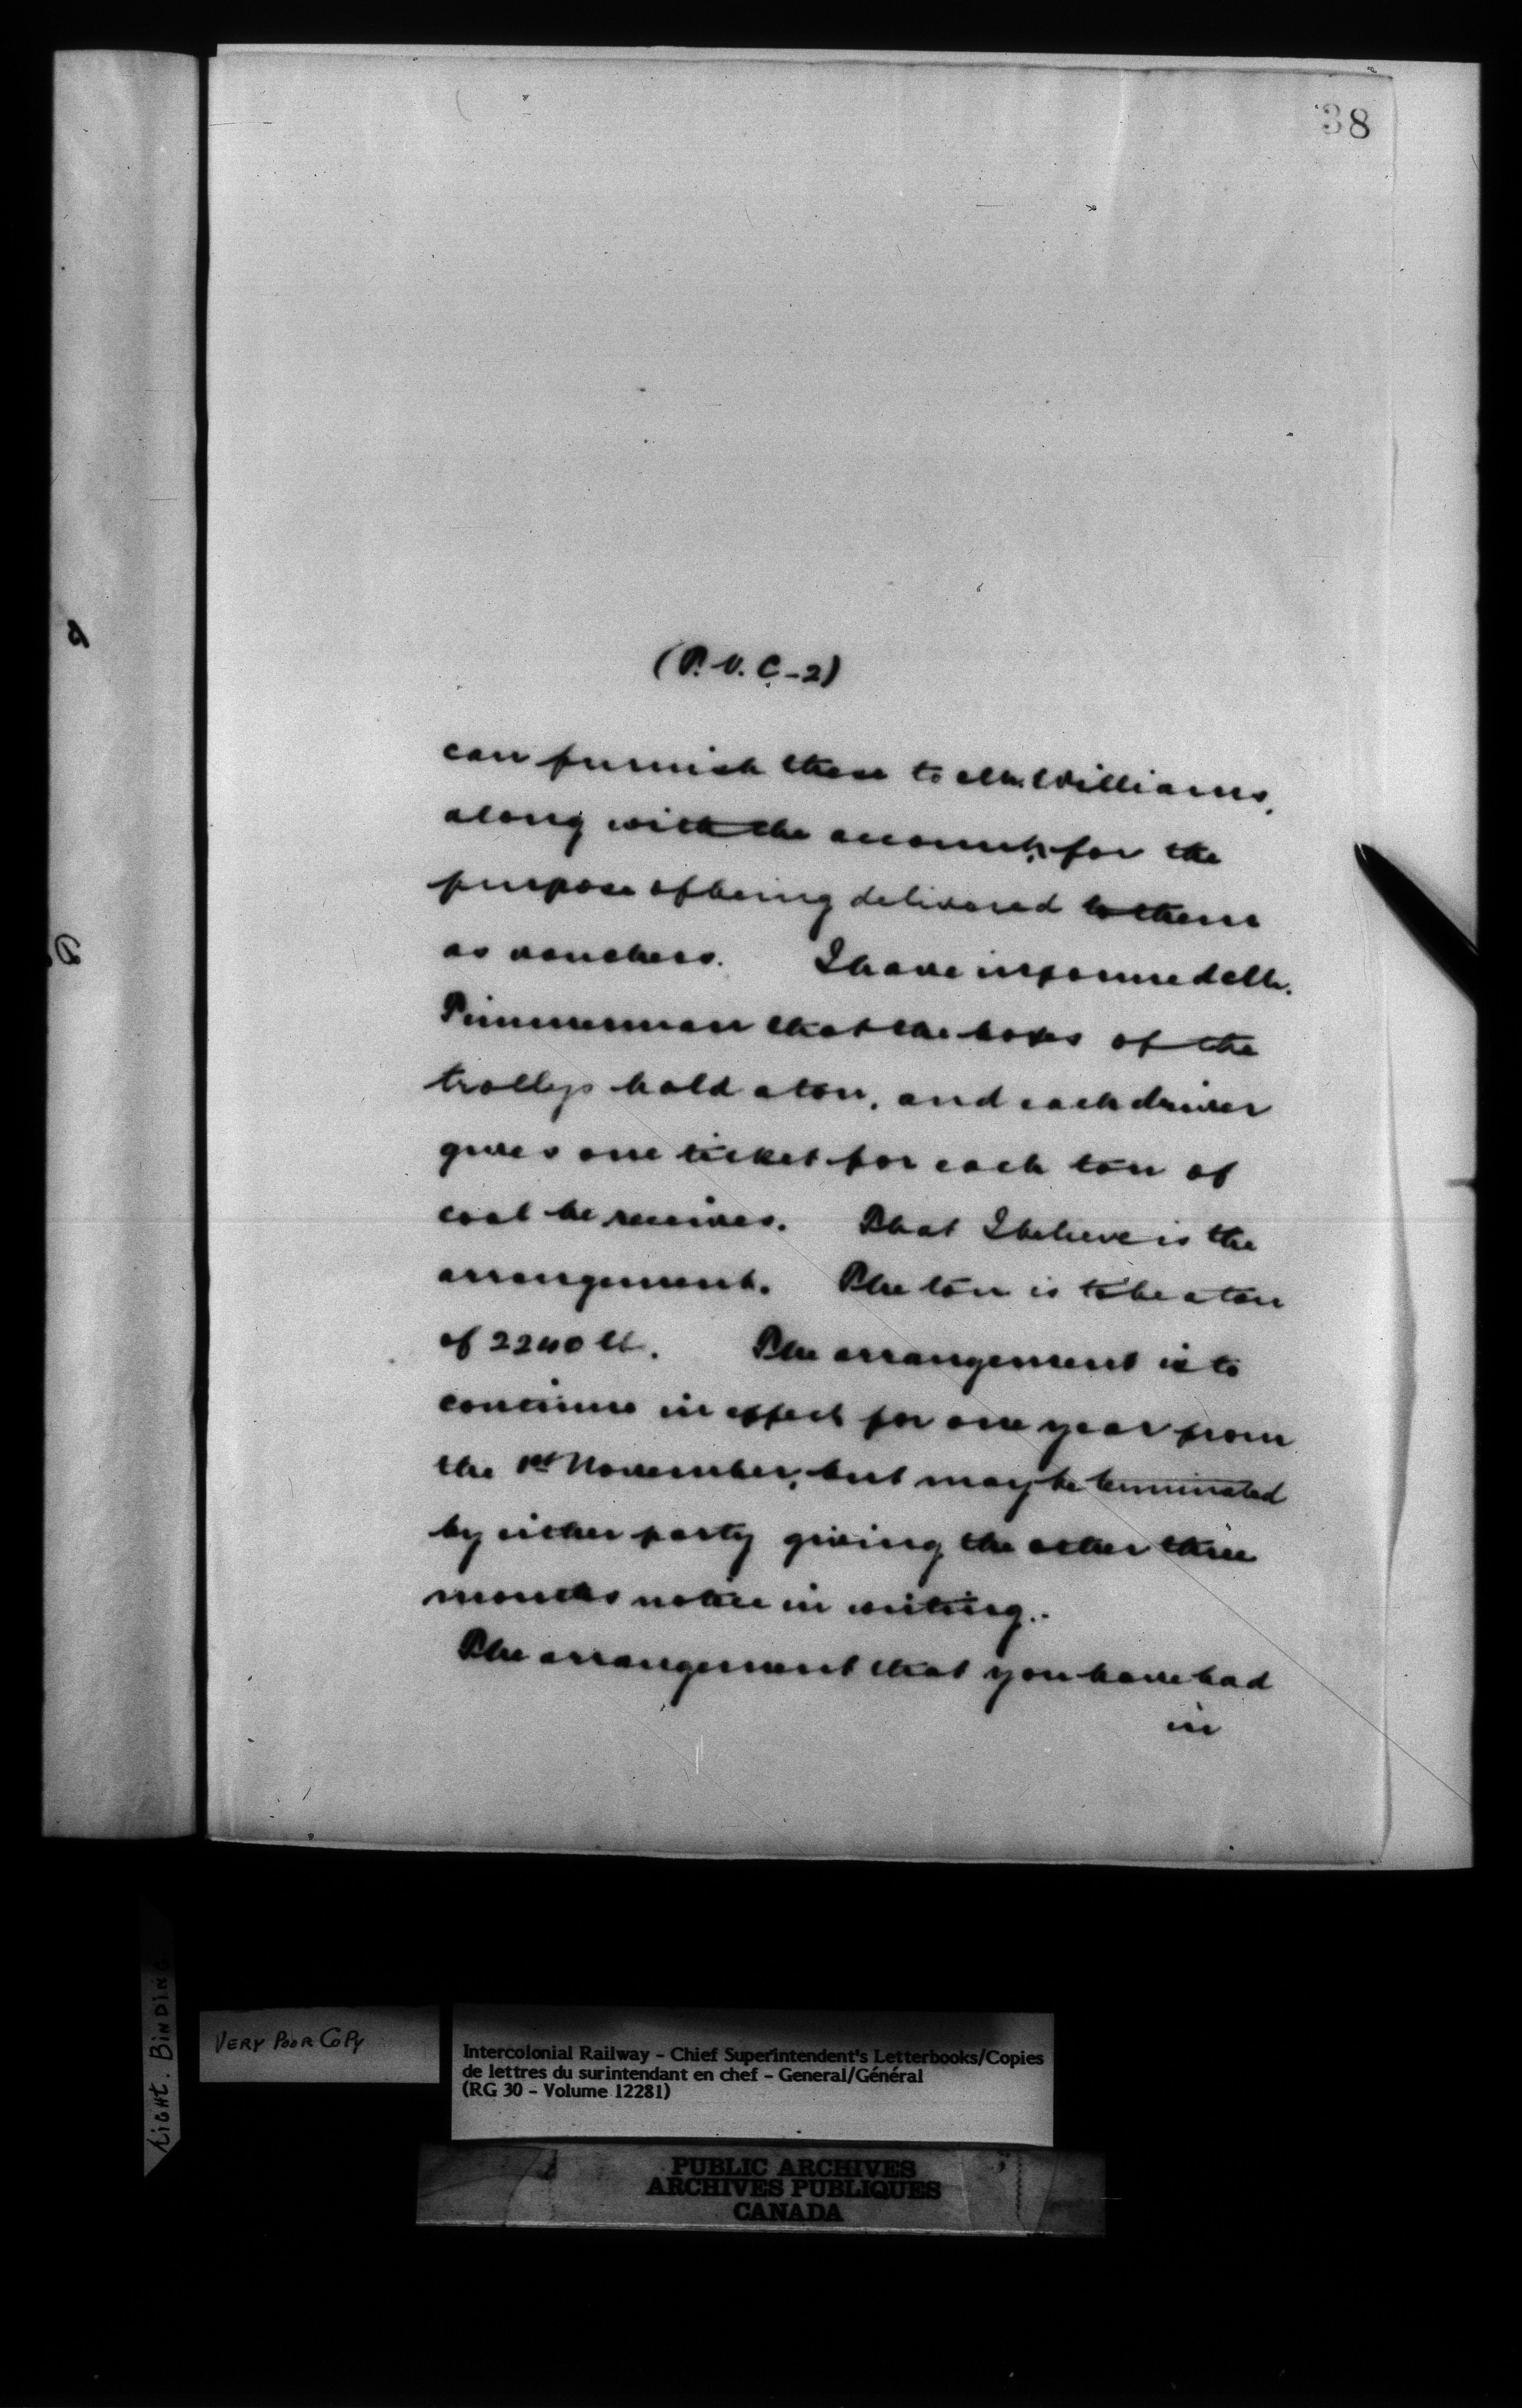 38
(P.V.C-2)
can furnish these to Mr. Williams,
along with the accounts, for the
purpose of being delivered to them
as vouchers. I have informed Mr.
Timmerman that the boxes of the
trolleys hold a ton, and each driver
gives one ticket for each ton of
coal he receives. That I believe is the
arrangement. The ton is to be a ton
of 2240 lb. The arrangement is to
continue in effect for one year from
the 1st November, but may be terminated
by either party giving the other three
months notice in writing.
The arrangement that you have had
in
TIGHT. BINDING
VERY POOR COPY
Intercolonial Railway - Chief Superintendent's Letterbooks/Copies
de lettres du surintendant en chef - General/Général
(RG 30 - Volume 12281)
PUBLIC ARCHIVES
ARCHIVES PUBLIQUES
CANADA